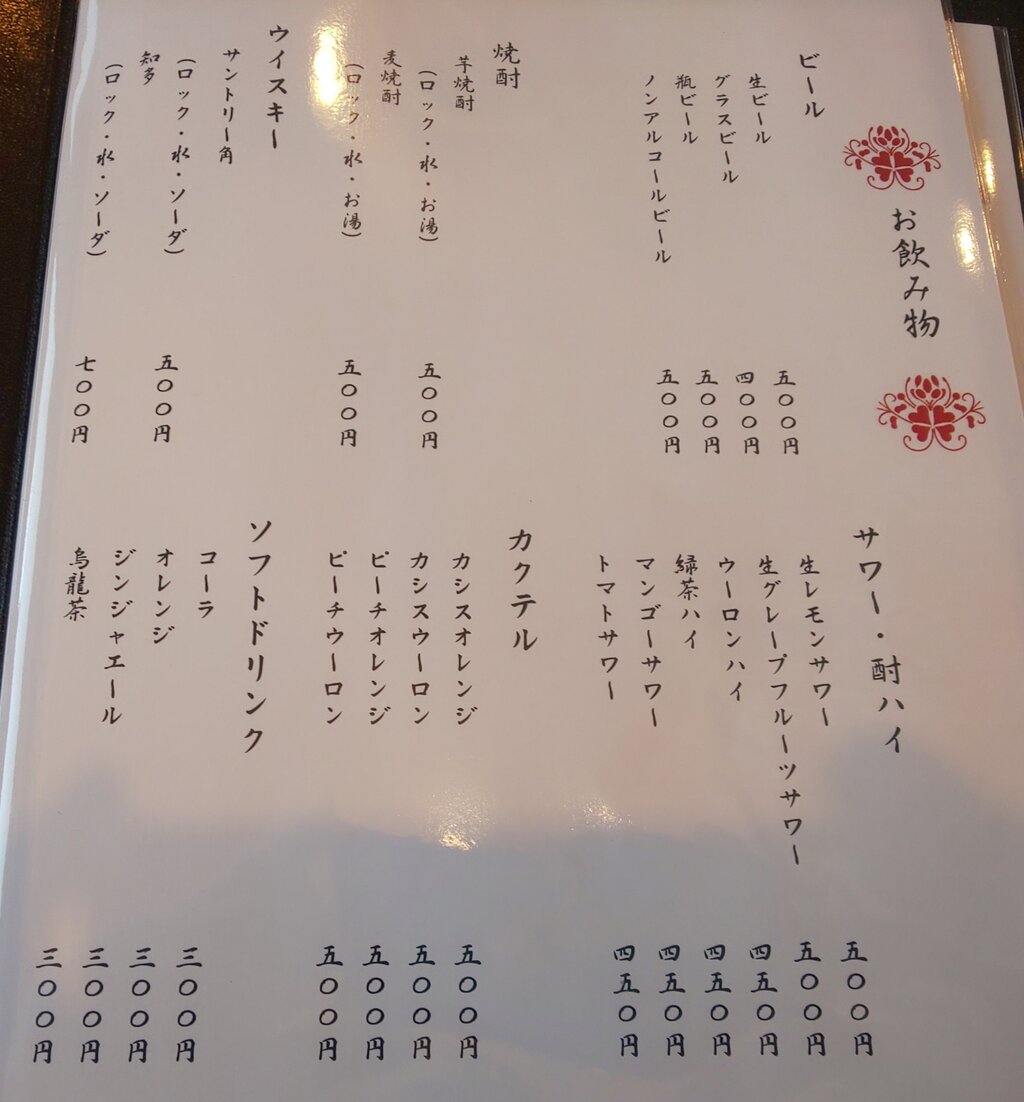 お飲み物
ビール
生ビール 五〇〇円
グラスビール 四〇〇円
瓶ビール 五〇〇円
ノンアルコールビール 五〇〇円
焼酎
芋焼酎
(ロック・水・お湯) 五〇〇円
麦焼酎
(ロック・水・お湯) 五〇〇円
ウイスキー
サントリー角
(ロック・水・ソーダ) 五〇〇円
知多
(ロック・水・ソーダ) 七〇〇円
サワー・酎ハイ
生レモンサワー 五〇〇円
生グレープフルーツサワー 五〇〇円
ウーロンハイ 四五〇円
緑茶ハイ 四五〇円
マンゴーサワー 四五〇円
トマトサワー 四五〇円
カクテル
カシスオレンジ 五〇〇円
カシスウーロン 五〇〇円
ピーチオレンジ 五〇〇円
ピーチウーロン 五〇〇円
ソフトドリンク
コーラ 三〇〇円
オレンジ 三〇〇円
ジンジャエール 三〇〇円
烏龍茶 三〇〇円